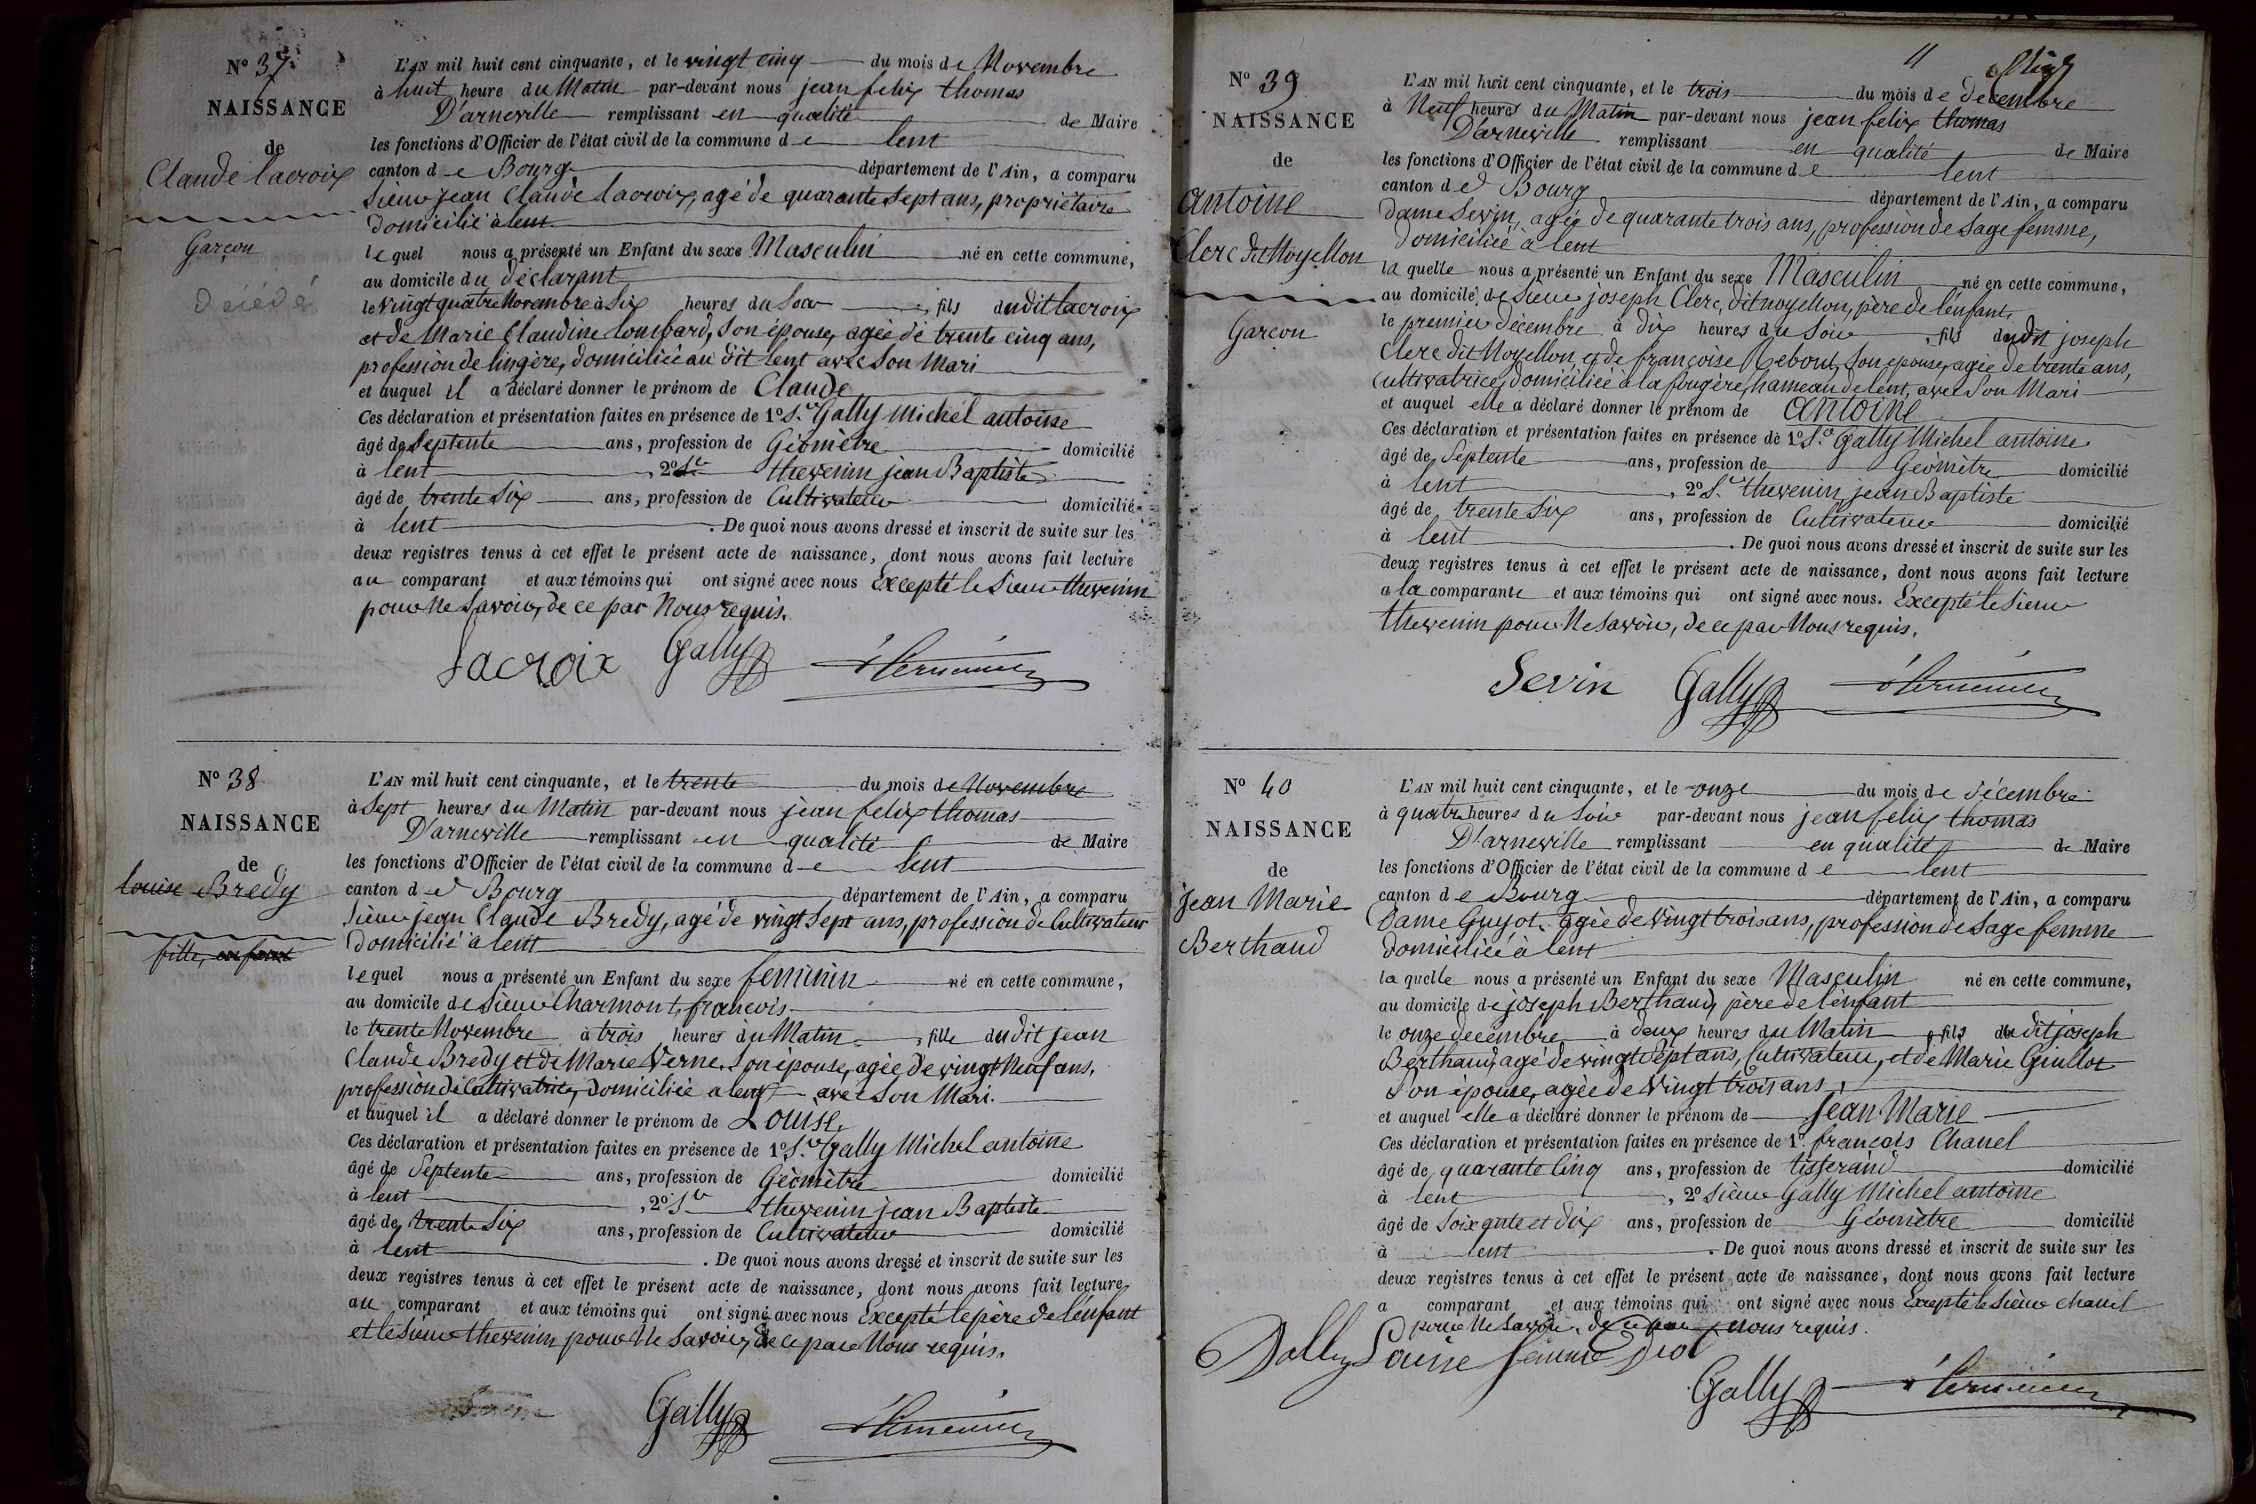 N° 37
NAISSANCE
de
Claude lacroix
Garçon
L'AN mil huit cent cinquante, et le vingt cinq du mois de Novembre
à huit heure du Matin par-devant nous jean felix thomas
D'arneville remplissant en qualité de Maire
les fonctions d'Officier de l'état civil de la commune de lent
canton de Bourg département de l'Ain, a comparu
Sieur jean Claude lacroix, agé de quarante Sept ans, propriétaire
domicilié à lent
lequel nous a présenté un Enfant du sexe Masculin né en cette commune,
au domicile du déclarant
le vingt quatre Novembre à Six heures du Soir, fils du dit lacroix
et de Marie Claudine Lombard, Son épouse, agée de trente cinq ans,
profession de lingère, domiciliée au dit lent avec Son Mari
et auquel il a déclaré donner le prénom de Claude
Ces déclaration et présentation faites en présence de 1° S.r Gally Michel antoine
âgé de Septente ans, profession de Géomètre domicilié
à lent, 2° S.r thevenin jean Baptiste
âgé de trente Six ans, profession de Cultivateur domicilié
à lent. De quoi nous avons dressé et inscrit de suite sur les
deux registres tenus à cet effet le présent acte de naissance, dont nous avons fait lecture
au comparant et aux témoins qui ont signé avec nous Excepté le Sieur thevenin
pour Ne Savoir, de ce par Nous requis.
Lacroix Gally
N° 38
NAISSANCE
de
louise Bredy
fille
L'AN mil huit cent cinquante, et le trente du mois de Novembre
à Sept heures du Matin par-devant nous jean felix thomas
D'arneville remplissant en qualité de Maire
les fonctions d'Officier de l'état civil de la commune de lent
canton de Bourg département de l'Ain, a comparu
Sieur jean Claude Bredy, agé de vingt Sept ans, profession de Cultivateur
Domicilié à lent
lequel nous a présenté un Enfant du sexe feminin né en cette commune,
au domicile de Sieur Charmont francois
le trente Novembre à trois heures du Matin, fille du dit jean
Claude Bredy et de Marie Verne Son épouse, agée de vingt Neuf ans,
profession de Cultivatrice, domiciliée a lent avec Son Mari.
et auquel il a déclaré donner le prénom de Louise,
Ces déclaration et présentation faites en présence de 1° S.r Gally Michel antoine
âgé de Septente ans, profession de Géomètre domicilié
à lent, 2° S.r thevenin jean Baptiste
âgé de trente Six ans, profession de Cultivateur domicilié
à lent. De quoi nous avons dressé et inscrit de suite sur les
deux registres tenus à cet effet le présent acte de naissance, dont nous avons fait lecture
au comparant et aux témoins qui ont signé avec nous Excepté le père de l'enfant
et le Sieur thevenin pour Ne Savoir, de ce par Nous requis.
Gally
11
N° 39
NAISSANCE
de
antoine
Clerc dit Noyellon
Garcon
L'AN mil huit cent cinquante, et le trois du mois de decembre
à Neuf heures du Matin par-devant nous jean felix thomas
D'arneville remplissant en qualité de Maire
les fonctions d'Officier de l'état civil de la commune de lent
canton de Bourg département de l'Ain, a comparu
Dame Sevin, agée de quarante trois ans, profession de Sage femme,
Domiciliée à lent
la quelle nous a présenté un Enfant du sexe Masculin né en cette commune,
au domicile de Sieur joseph Clerc, dit noyellon, père de l'enfant,
le premier décembre à dix heures du Soir, fils du dit joseph
Clerc dit Noyellon, et de françoise Rebout, Son epouse, agée de trente ans,
Cultivatrice, domiciliée à la fougère, hameau de lent, avec Son Mari
et auquel elle a déclaré donner le prénom de antoine
Ces déclaration et présentation faites en présence de 1° S.r Gally Michel antoine
âgé de Septente ans, profession de Géomètre domicilié
à lent, 2° S.r thevenin, jean Baptiste
âgé de trente Six ans, profession de Cultivateur domicilié
à lent. De quoi nous avons dressé et inscrit de suite sur les
deux registres tenus à cet effet le présent acte de naissance, dont nous avons fait lecture
a la comparante et aux témoins qui ont signé avec nous. Excepté le Sieur
thevenin pour Ne Savoir, de ce par Nous requis.
Sevin Gally
N° 40
NAISSANCE
de
jean Marie
Berthaud
L'AN mil huit cent cinquante, et le onze du mois de décembre
à quatre heures du Soir par-devant nous jean felix thomas
D'arneville remplissant en qualité de Maire
les fonctions d'Officier de l'état civil de la commune de lent
canton de Bourg département de l'Ain, a comparu
Dame Guyot agée de vingt trois ans, profession de Sage femme
domiciliée à lent
la quelle nous a présenté un Enfant du sexe Masculin né en cette commune,
au domicile de joseph Berthaud, père de l'enfant
le onze decembre à deux heures du Matin, fils du dit joseph
Berthaud, agé de vingt Sept ans, Cultivateur, et de Marie Guillot
Son épouse, agée de vingt trois ans,
et auquel elle a déclaré donner le prénom de jean Marie
Ces déclaration et présentation faites en présence de 1° francois Chanel
âgé de quarante Cinq ans, profession de tisserand domicilié
à lent, 2° Sieur Gally Michel antoine
âgé de Soixante et dix ans, profession de Géomètre domicilié
à lent. De quoi nous avons dressé et inscrit de suite sur les
deux registres tenus à cet effet le présent acte de naissance, dont nous avons fait lecture
a comparant et aux témoins qui ont signé avec nous Excepté le Sieur Chanel
pour Ne Savoir, de ce par nous requis.
Louise femme
Gally